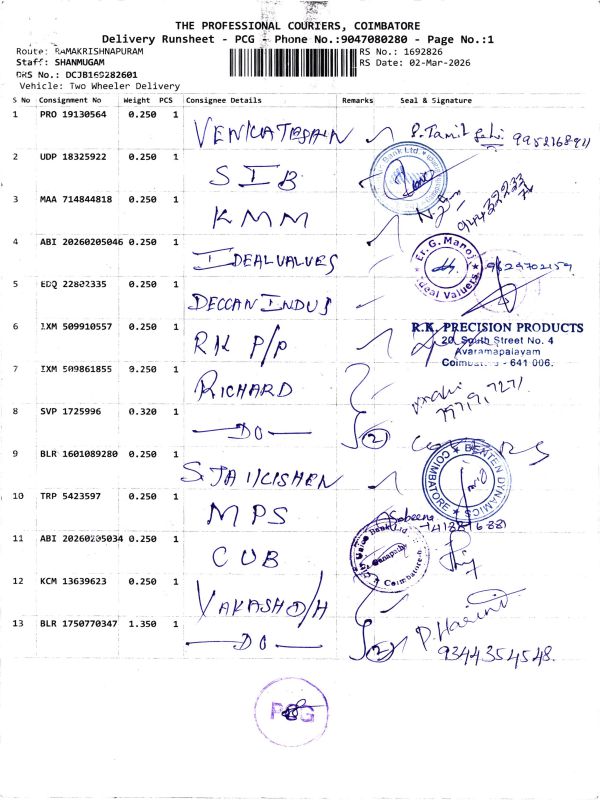 THE PROFESSIONAL COURIERS, COIMBATORE
Delivery Runsheet - PCG - Phone No.:9047080280 - Page No.:1
Route: RAMAKRISHNAPURAM
RS No.: 1692826
Staff: SHANMUGAM
RS Date: 02-Mar-2026
DRS No.: DCJB169282601
Vehicle: Two Wheeler Delivery
S No Consignment No Weight PCS Consignee Details Remarks Seal & Signature
1 PRO 19130564 0.250 1
2 UDP 18325922 0.250 1 SIB
Bank Ltd.
3 MAA 714844818 0.250 1 KMM
4 ABI 20260205046 0.250 1 IDEALVALVES
Er. G. Manoj
Ideal Valuers
5 EDQ 22802335 0.250 1 DECCAN INDUS
6 IXM 509910557 0.250 1 RK P/P
R.K. PRECISION PRODUCTS
20, South Street No. 4
Avaramapalayam
- 641 006.
7 IXM 509861855 0.250 1 RICHARD
8 SVP 1725996 0.320 1 —DO— 2
9 BLR 1601089280 0.250 1
BENTEN DYNAMICS
COIMBATORE
10 TRP 5423597 0.250 1 MPS
Sabeena
11 ABI 20260205034 0.250 1 CUB
City Union Bank Ltd.
Ganapathy
Coimbatore-6
12 KCM 13639623 0.250 1
13 BLR 1750770347 1.350 1 —DO— 2 P. Harini
9344354548.
PCG